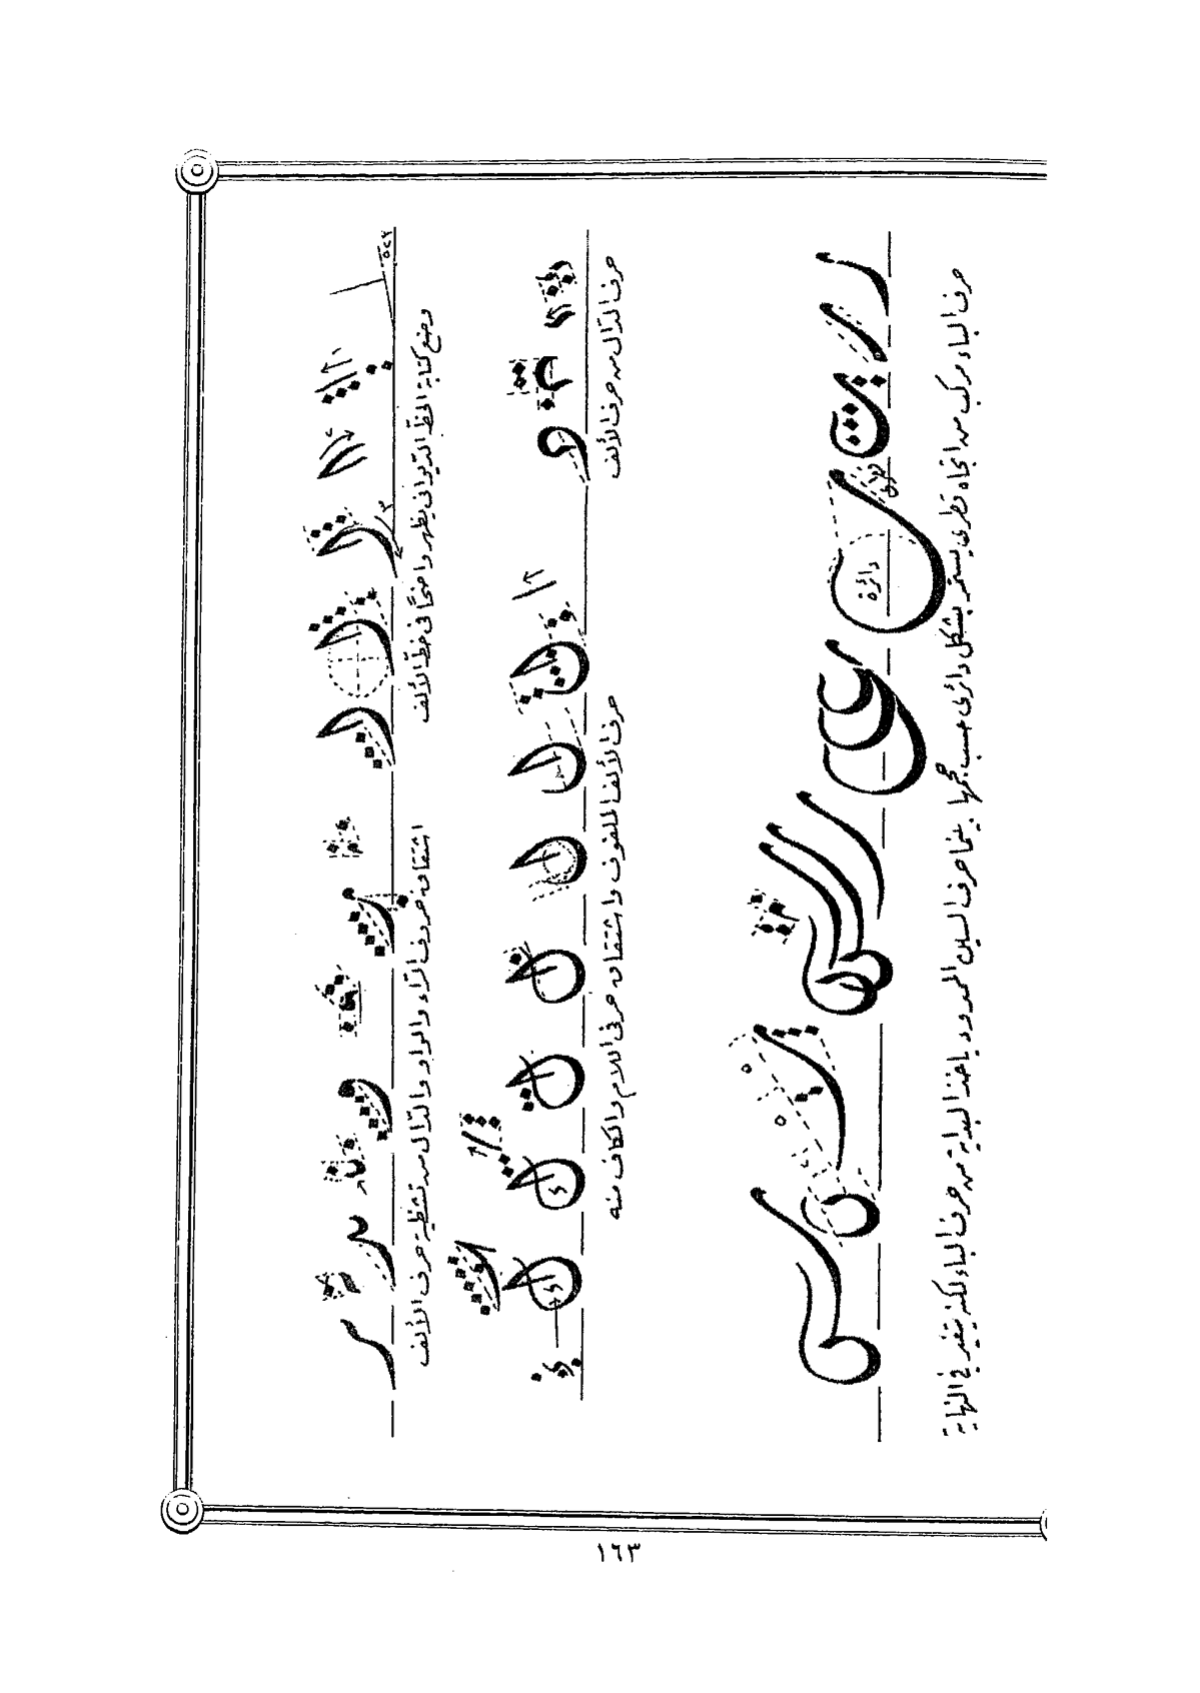 وضع كتابة الخط الديواني يظهر واضحاً في خط الألف
اشتقاق حروف الراء والواو والدال من تشظية حرف الألف
حرف الدال من حرف الألف
حرف الألف الملفوف واشتقاق حرفي اللام والكاف منه
دائرة
حرف الباء مركب من اتجاه قطري يستمر بشكل دائري حسب حجمها بينما حرف السين الممدود ياخذ البداية من حرف الباء لكنه يتغير في النهاية
١٦٣